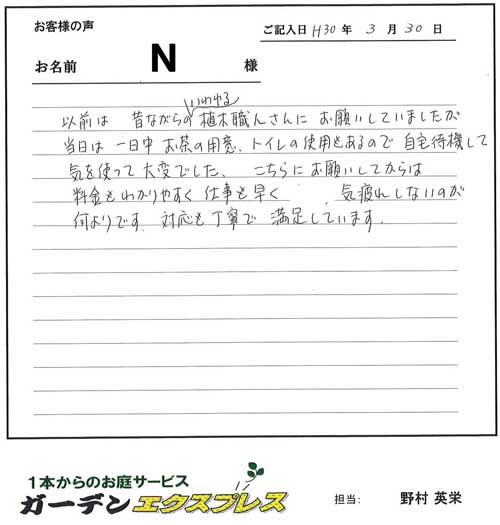 お客様の声
ご記入日 H30年 3月30日
お名前 N 様
いわゆる
以前は 昔ながらの植木職人さんに お願いしていましたが
当日は 一日中 お茶の用意、トイレの使用もあるので 自宅待機して
気を使って大変でした、 こちらにお願いしてからは
料金もわかりやすく 仕事も早く 気疲れしないのが
何よりです 対応も丁寧で 満足しています.
1本からのお庭サービス
ガーデンエクスプレス
担当: 野村 英栄